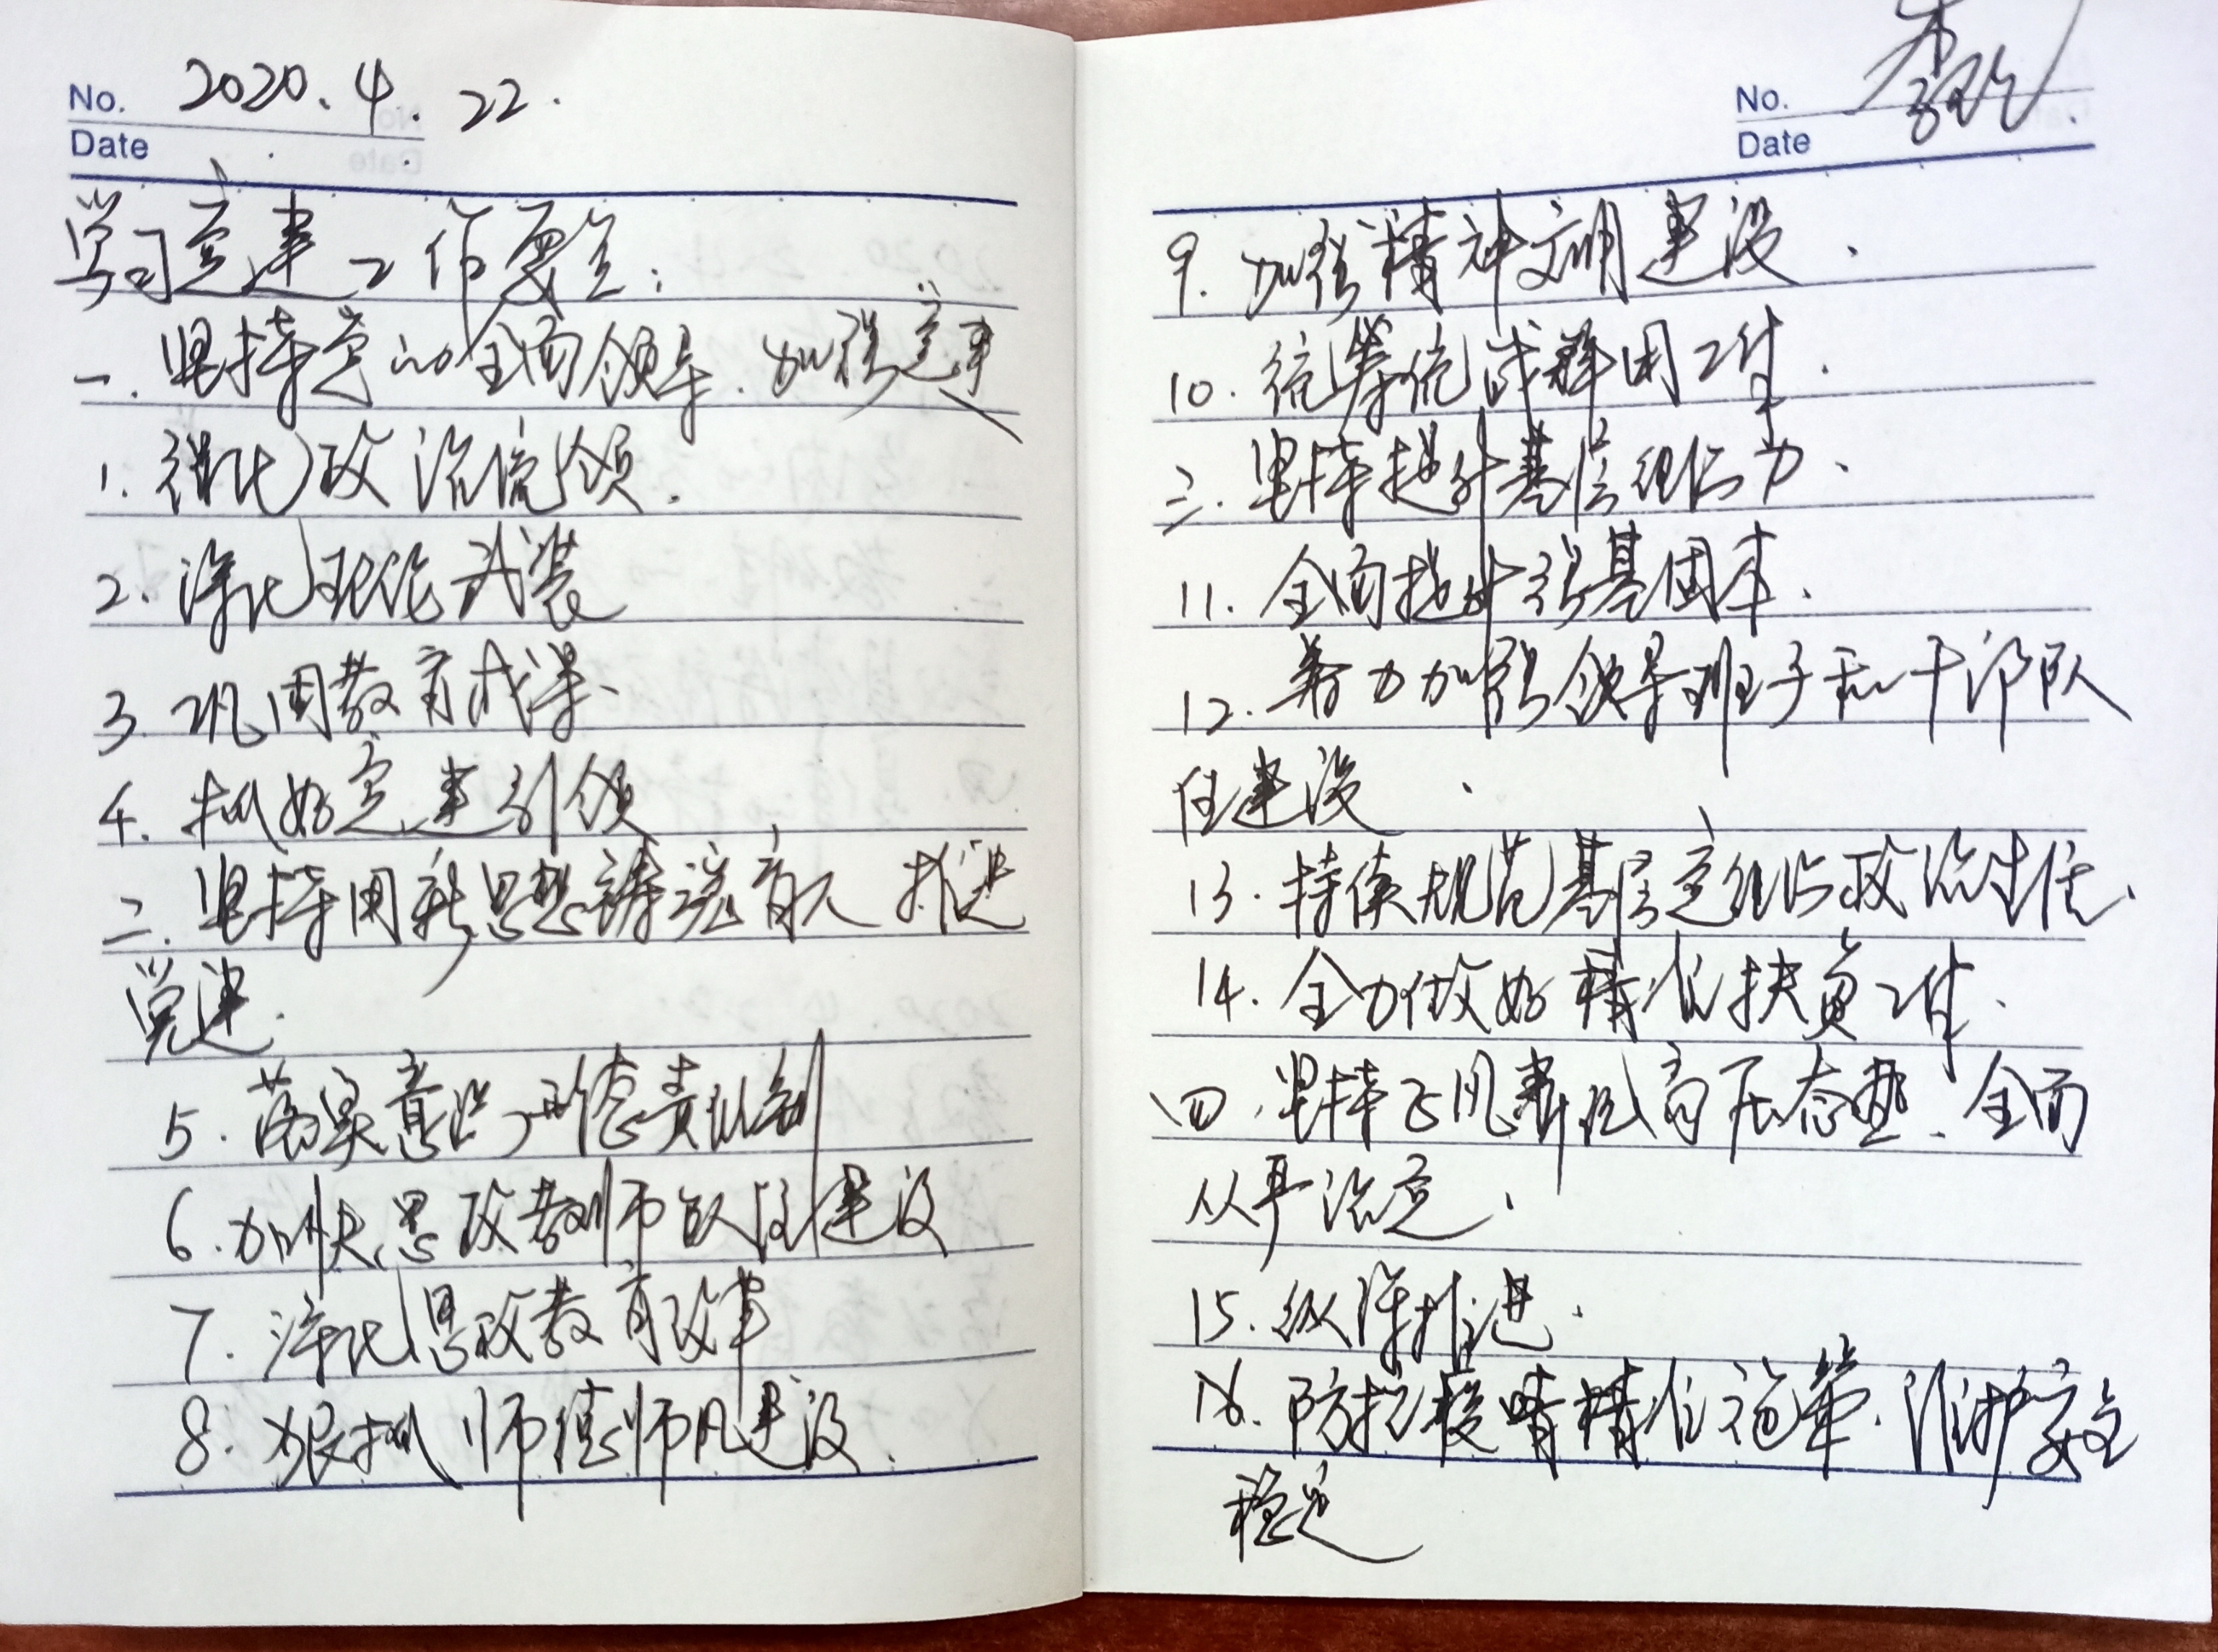 No. 2020.4.22.
Date
学习党建工作要点:
一.坚持党的全面领导.加强党建
1.强化政治统领.
2.深化理论武装
3.巩固教育成果、
4.抓好党建引领
二.坚持用新思想铸魂育人 推进
党建.
5.落实意识形态责任制
6.加快思政教师队伍建设
7.深化思政教育改革
8.狠抓师德师风建设.
No.
Date
9.加强精神文明建设.
10.统筹统战群团工作.
三.坚持提升基层组织力.
11.全面提升强基固本.
12.着力加强领导班子和干部队
伍建设.
13.持续规范基层党组织政治生活.
14.全力做好精准扶贫工作.
四.坚持正风肃纪高压态势.全面
从严治党.
15.纵深推进.
16.防控疫情精准施策.维护安全
稳定